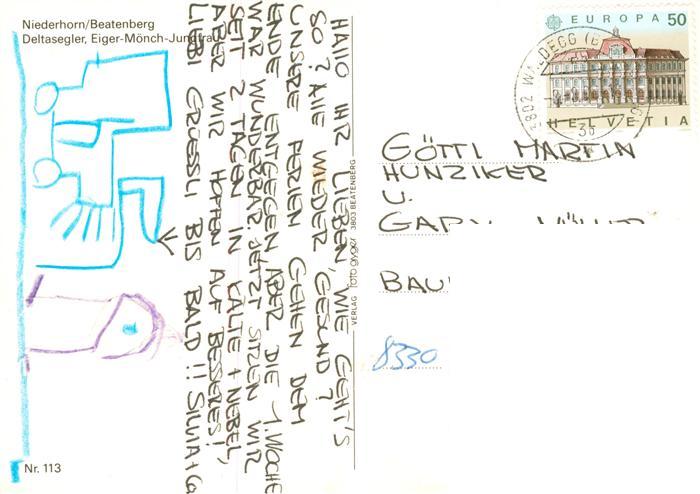 Niederhorn/Beatenberg
Deltasegler, Eiger-Mönch-Jungfrau
HALLO IHR LIEBEN, WIE GEHT'S
SO? ALLE WIEDER GESUND?
UNSERE FERIEN GEHEN DEM
ENDE ENTGEGEN, ABER DIE 1. WOCHE
WAR WUNDERBAR. JETZT SITZEN WIR
SEIT 2 TAGEN IN KÄLTE + NEBEL,
ABER WIR HOFFEN AUF BESSERES!
LIEBI GRÜESSLI BIS BALD!! SILVIA +
VERLAG foto gyger 3803 BEATENBERG
EUROPA 50
HELVETIA
3802 WALDEGG (B
GÖTTI MARTIN
HUNZIKER
U.
GARY
BAU
8330
Nr. 113